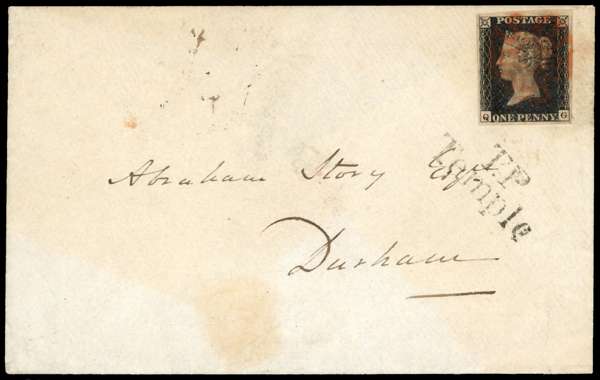 POSTAGE
Q ONE PENNY G
T.P
Temple
Abraham Story Esqr
Durham